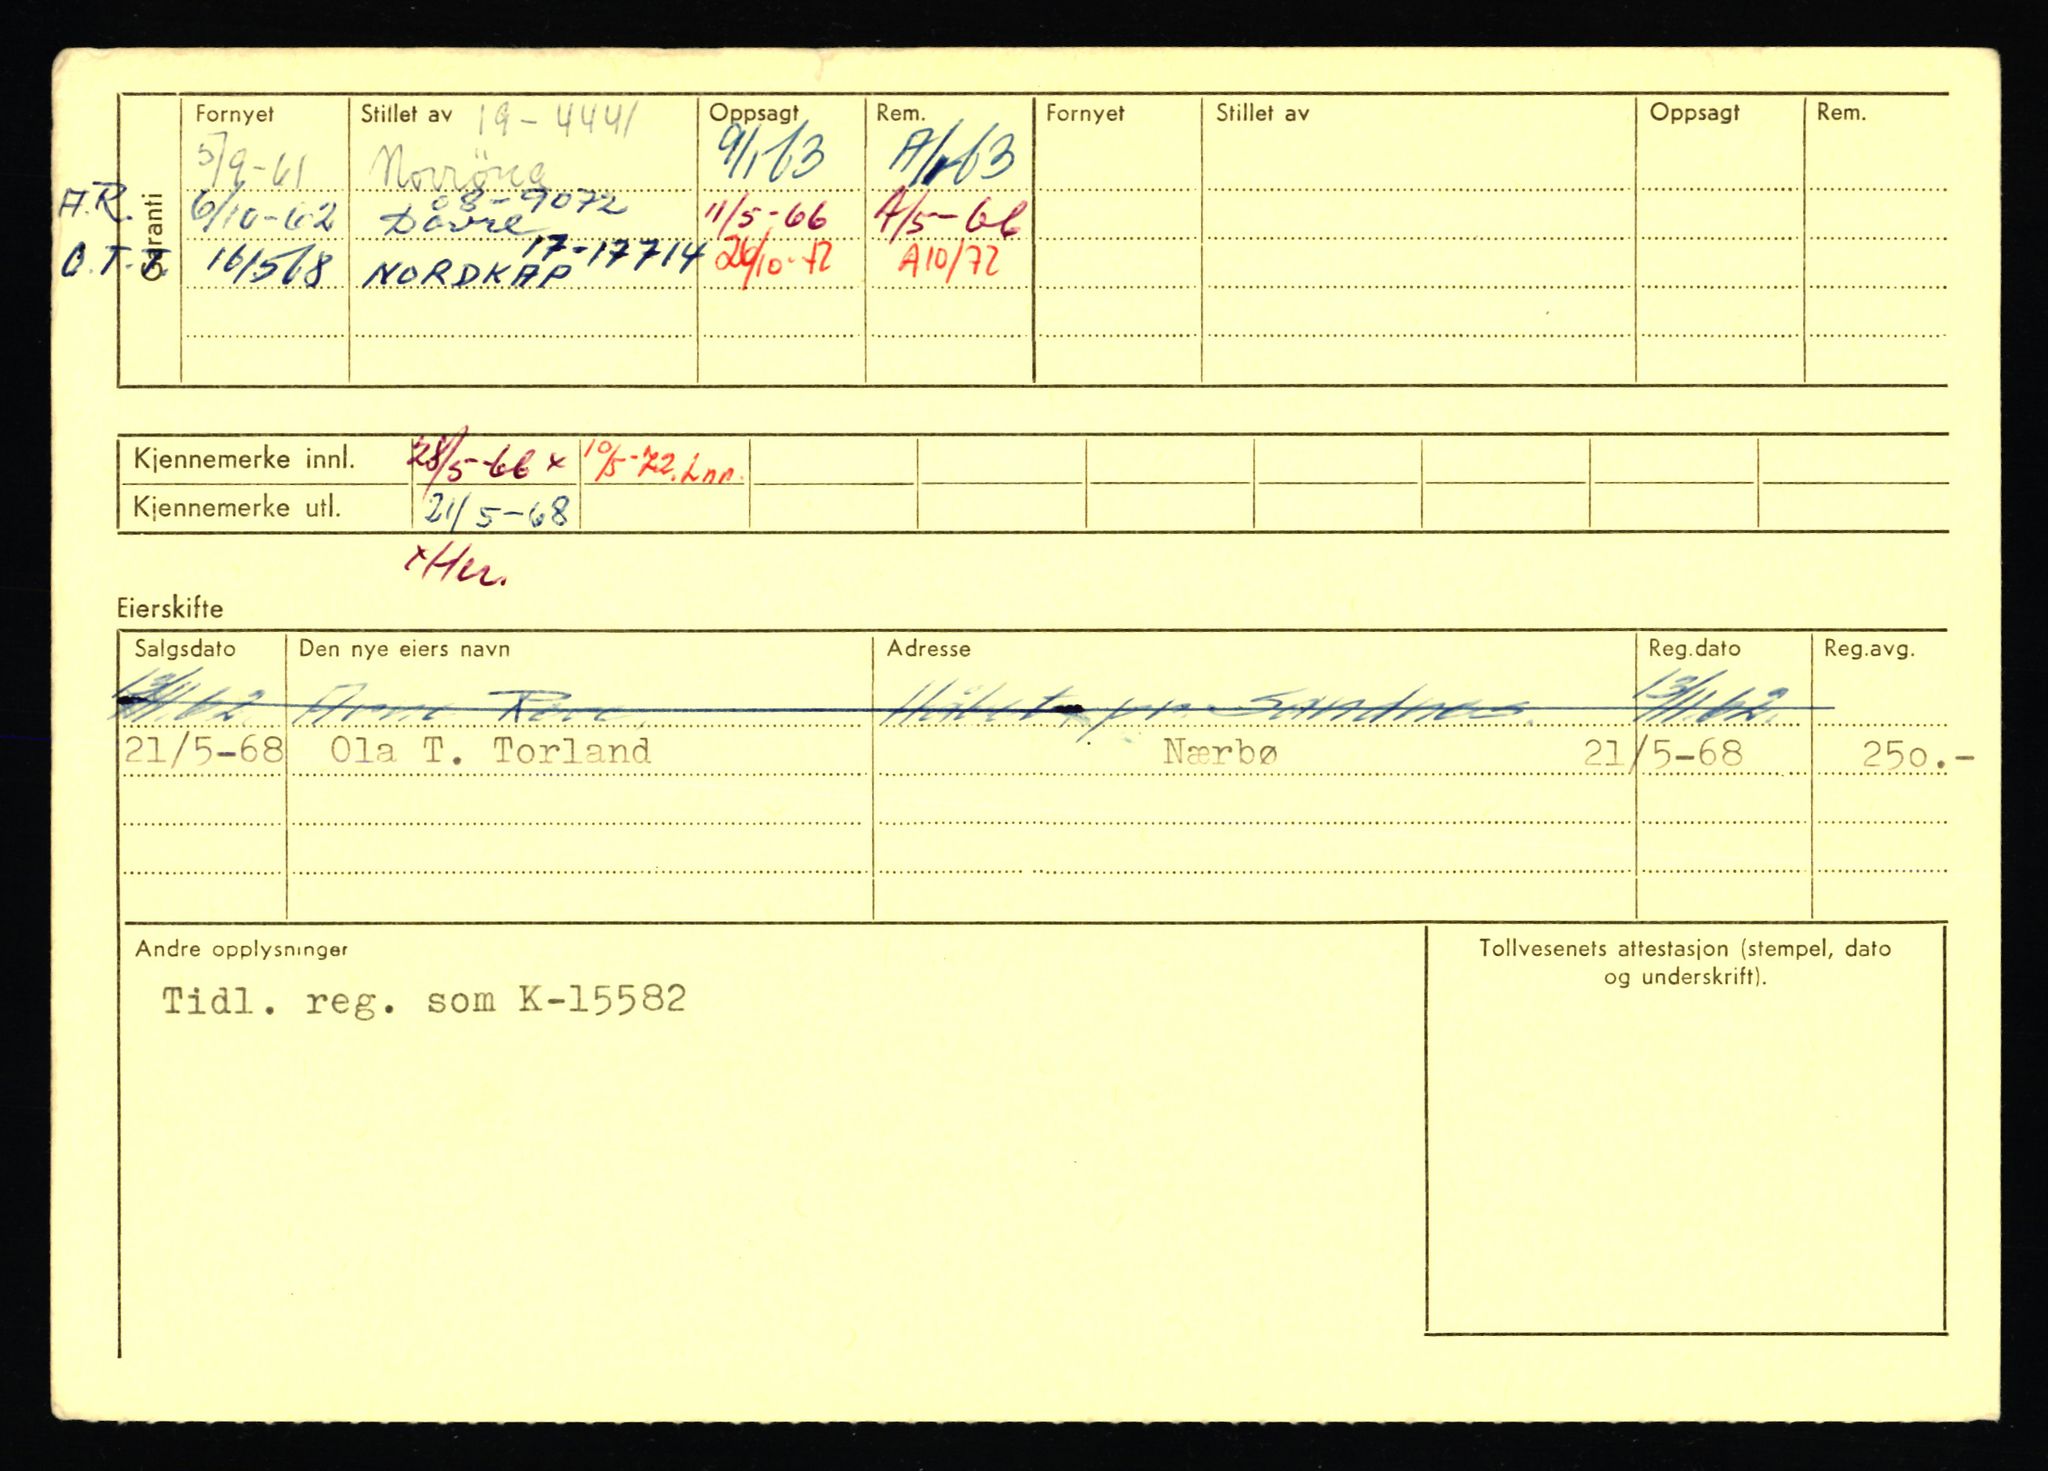 Garanti
Fornyet Stillet av 19-4441 Oppsagt Rem. Fornyet Stillet av Oppsagt Rem.
5/9-61 Norröna 9/1 63 A/1-63
A.R. 6/10-62 08-9072 Dovre 11/5-66 A/5-66
O.T.T. 16/5 68 17-17714 NORDKAP 26/10-72 A10/72
Kjennemerke innl. 28/5-66 x 10/5-72. Lnn.
Kjennemerke utl. 21/5-68
x Her.
Eierskifte
Salgsdato Den nye eiers navn Adresse Reg.dato Reg.avg.
13/11.62. Arne pr. Sandnes. 13/11.62.
21/5-68 Ola T. Torland Nærbø 21/5-68 250.-
Andre opplysninger
Tidl. reg. som K-15582
Tollvesenets attestasjon (stempel, dato
og underskrift).